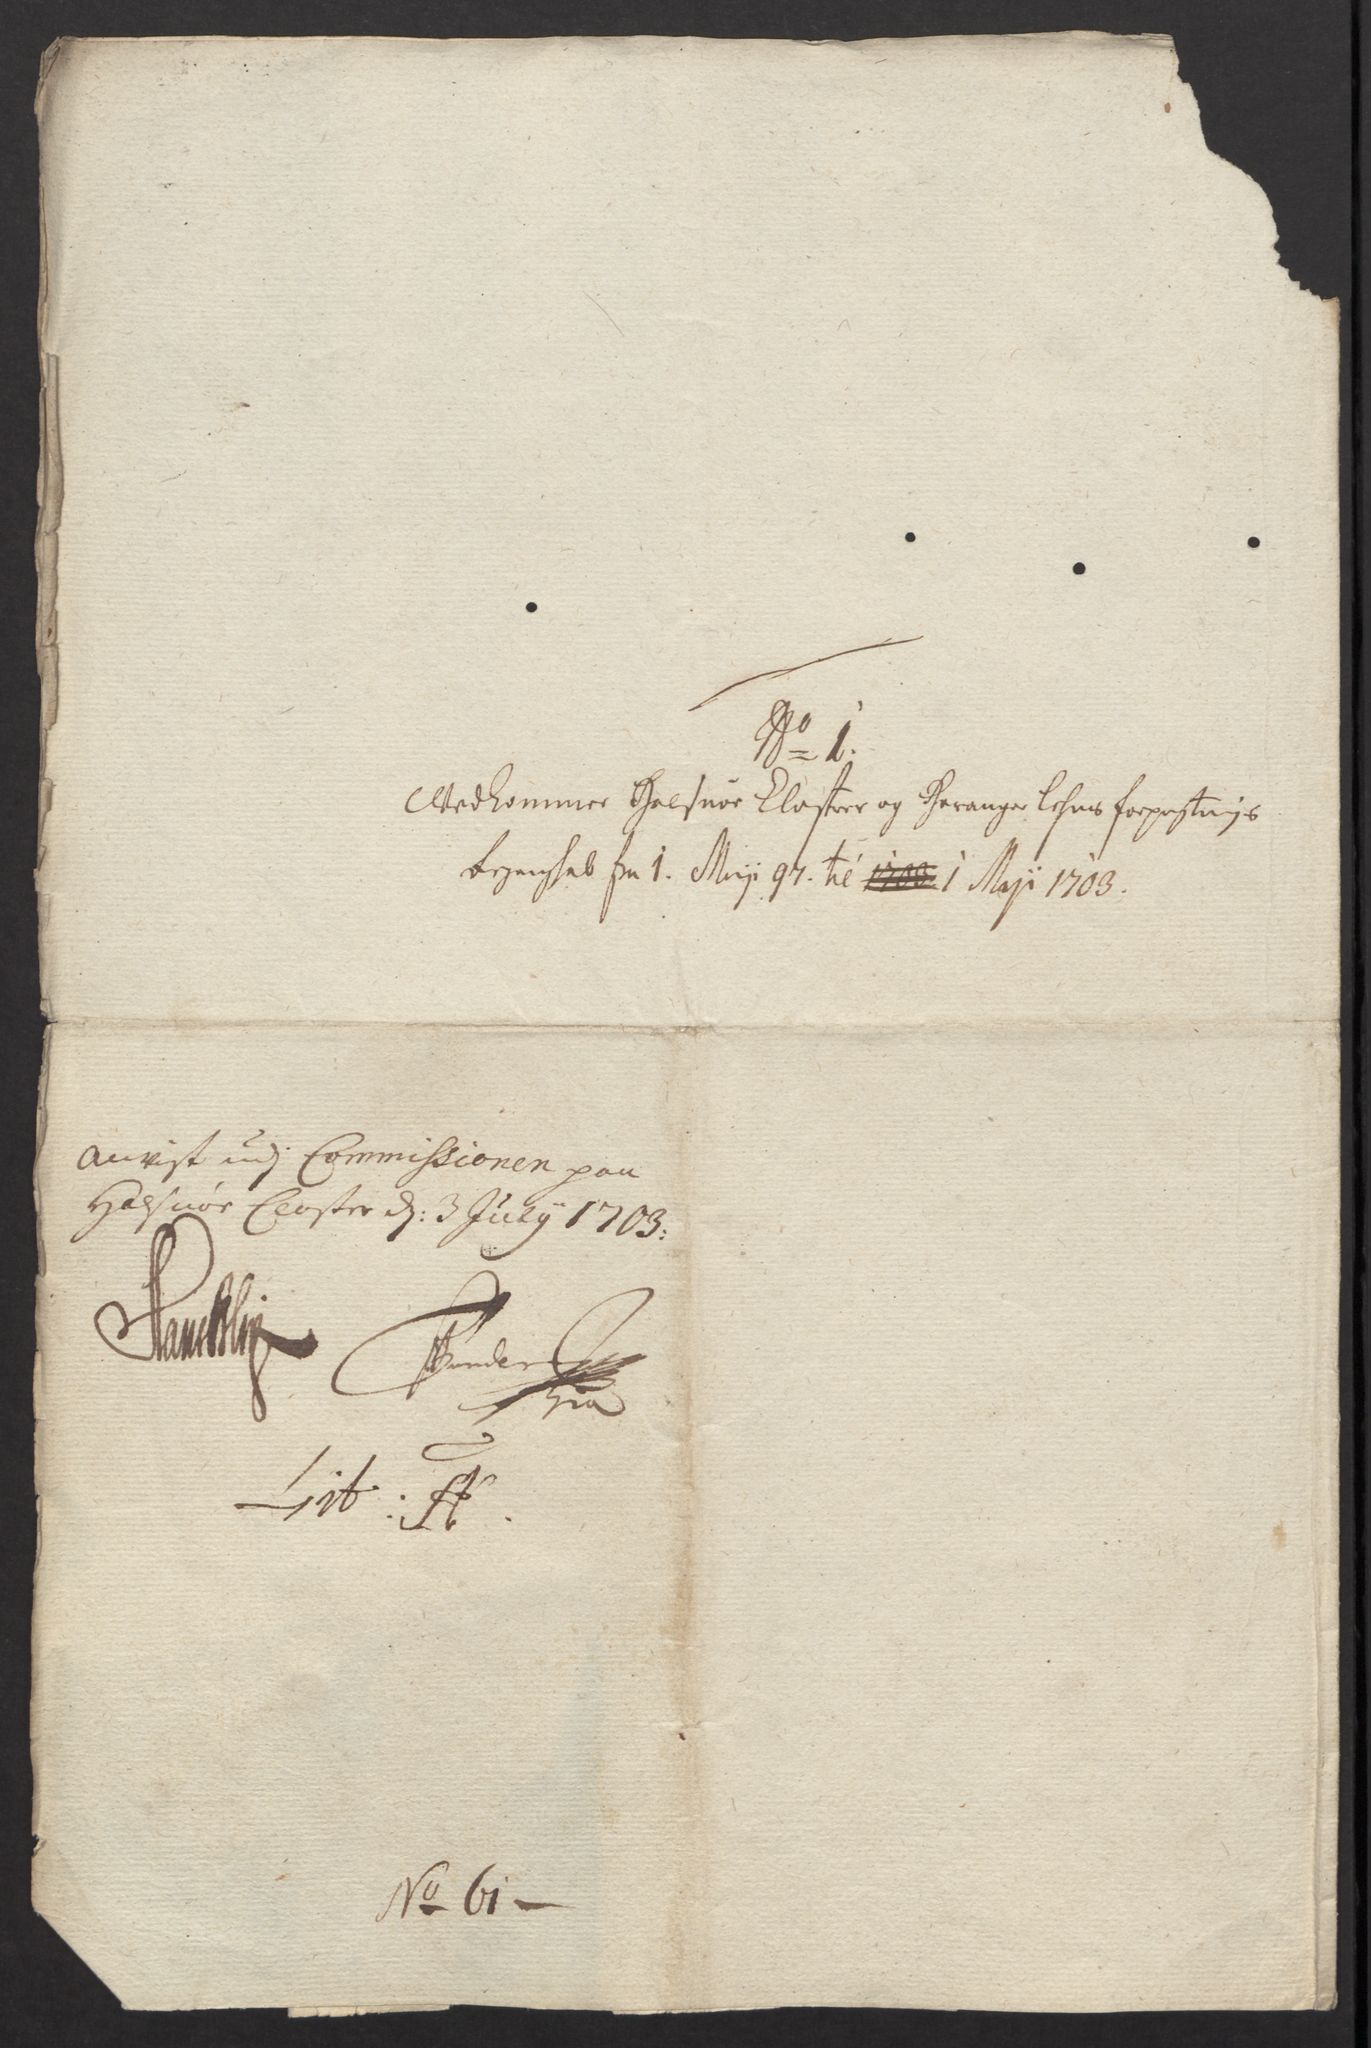 No 1.
Vedkommer Halsnøe Closter og Haranger Lehns forpagtnings
Regenskab fra 1. Maji 97. til 1 Maji 1703.
Anvist udj Commissionen paa
Halsnøe Closter d: 3 July 1703:
Lit: A.
No 61